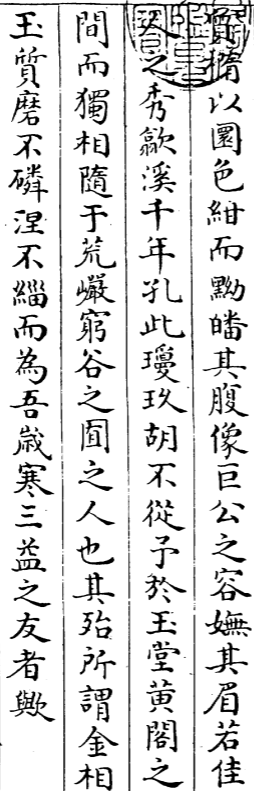 實橢以圜色紺而黝皤其腹像巨公之容嫵其眉若佳
人之秀歙溪千年孔此瓊玖胡不從予於玉堂黃閣之
間而獨相隨于荒巗窮谷之囿之人也其殆所謂金相
玉質磨不磷涅不緇而為吾歳寒三益之友者歟